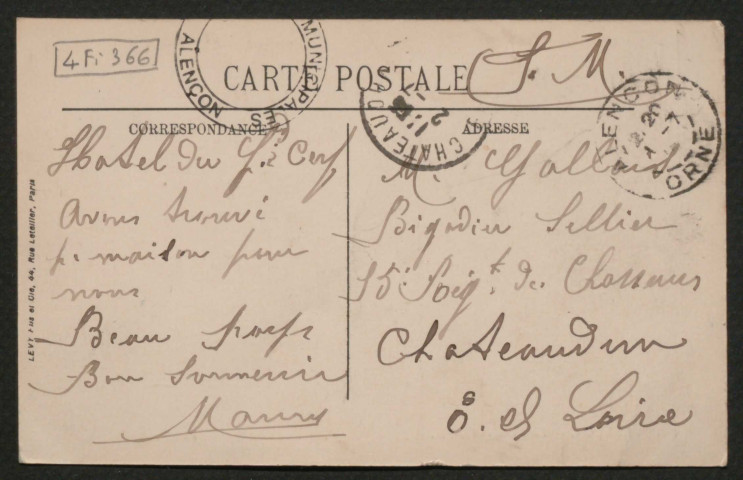 4 Fi 366
MUNICIPALES
ALENÇON
CARTE POSTALE
S. M.
CHATEAUDUN
ALENCON
ORNE
CORRESPONDANCE
ADRESSE
Hotel du Gd Cerf
Avons trouvé
pr maison pour
nous
Beau temps
Bon Souvenir
Mr
Brigadier Sellier
15e Régt de Chasseurs
Chateaudun
E. et Loire
LEVY Fils et Cie, 44, Rue Letellier, Paris